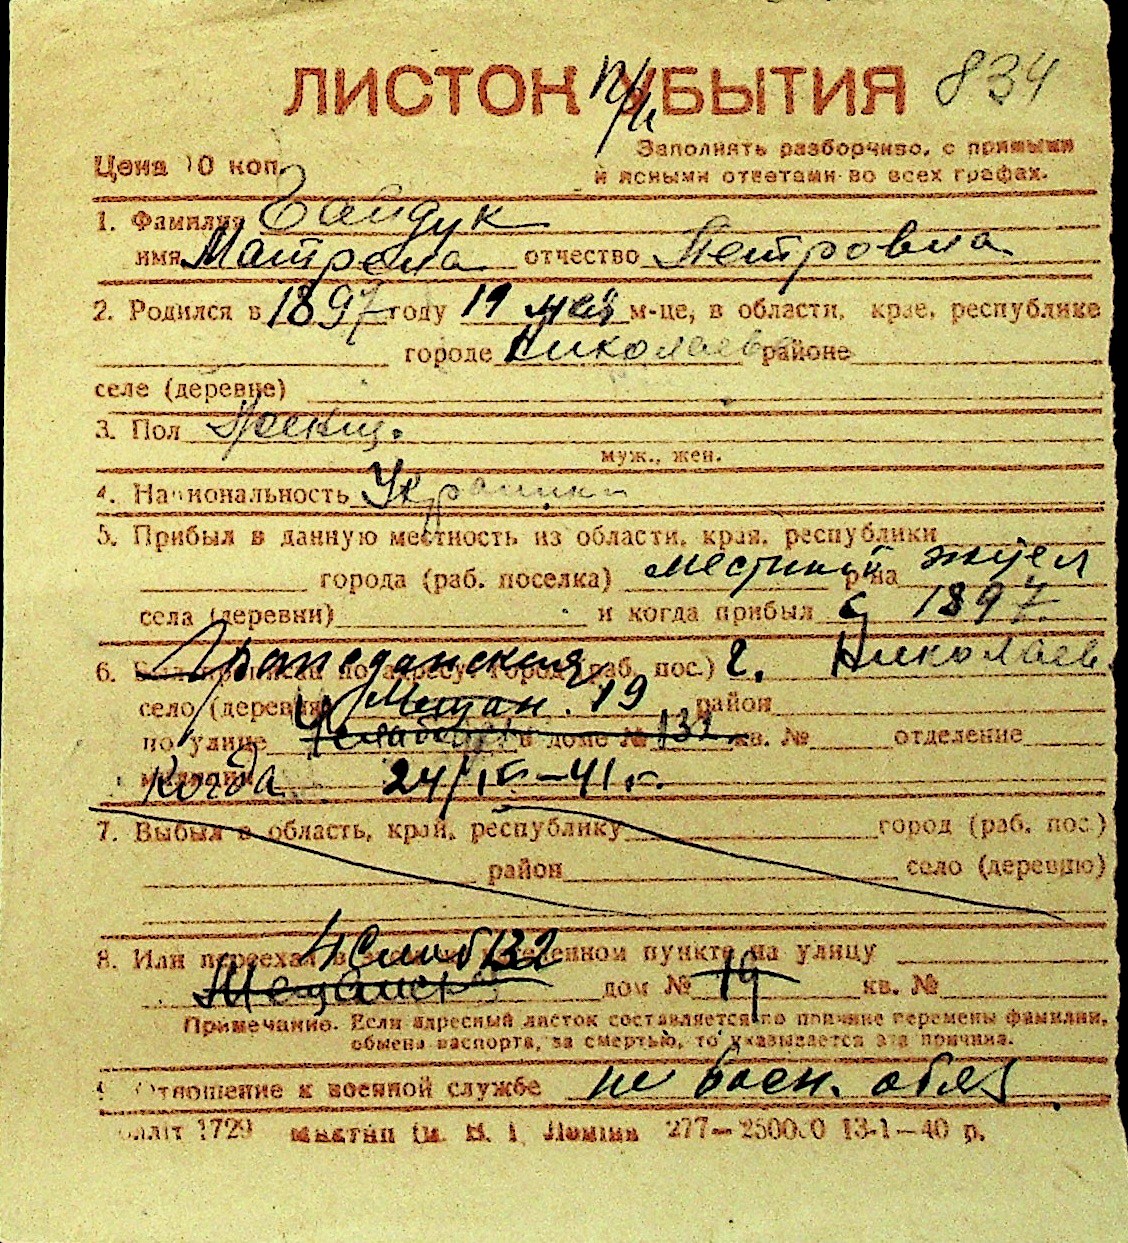 ЛИСТОК УБЫТИЯ 834
Цена 10 коп.
Заполнять разборчиво, с прямыми
и ясными ответами во всех графах.
1. Фамилия Гайдук
имя Матрена отчество Петровна
2. Родился в 1897 году 19 мая м-це, в области, крае, республике
городе Николаев районе
селе (деревне)
3. Пол Женщ.
муж., жен.
4. Национальность Украинка
5. Прибыл в данную местность из области, края, республики
города (раб. поселка) местный р-на жител
села (деревни) и когда прибыл с 1897.
6. Был прописан по адресу: город (раб. пос.) г. Николаев.
Гражданская
село (деревня) Мещан. 19 район
по улице в доме № 132 кв. № отделение
милиции Когда 24/IX-41 г.
7. Выбыл в область, край, республику город (раб. пос.)
район село (деревню)
8. Или переехал в данном населенном пункте на улицу
4 Слоб 132
Мещанск дом № 19 кв. №
Примечание. Если адресный листок составляется по причине перемены фамилии,
обмена паспорта, за смертью, то указывается эта причина.
9. Отношение к военной службе не воен. обяз.
1729 Леніна 277—250000 13-1—40 р.